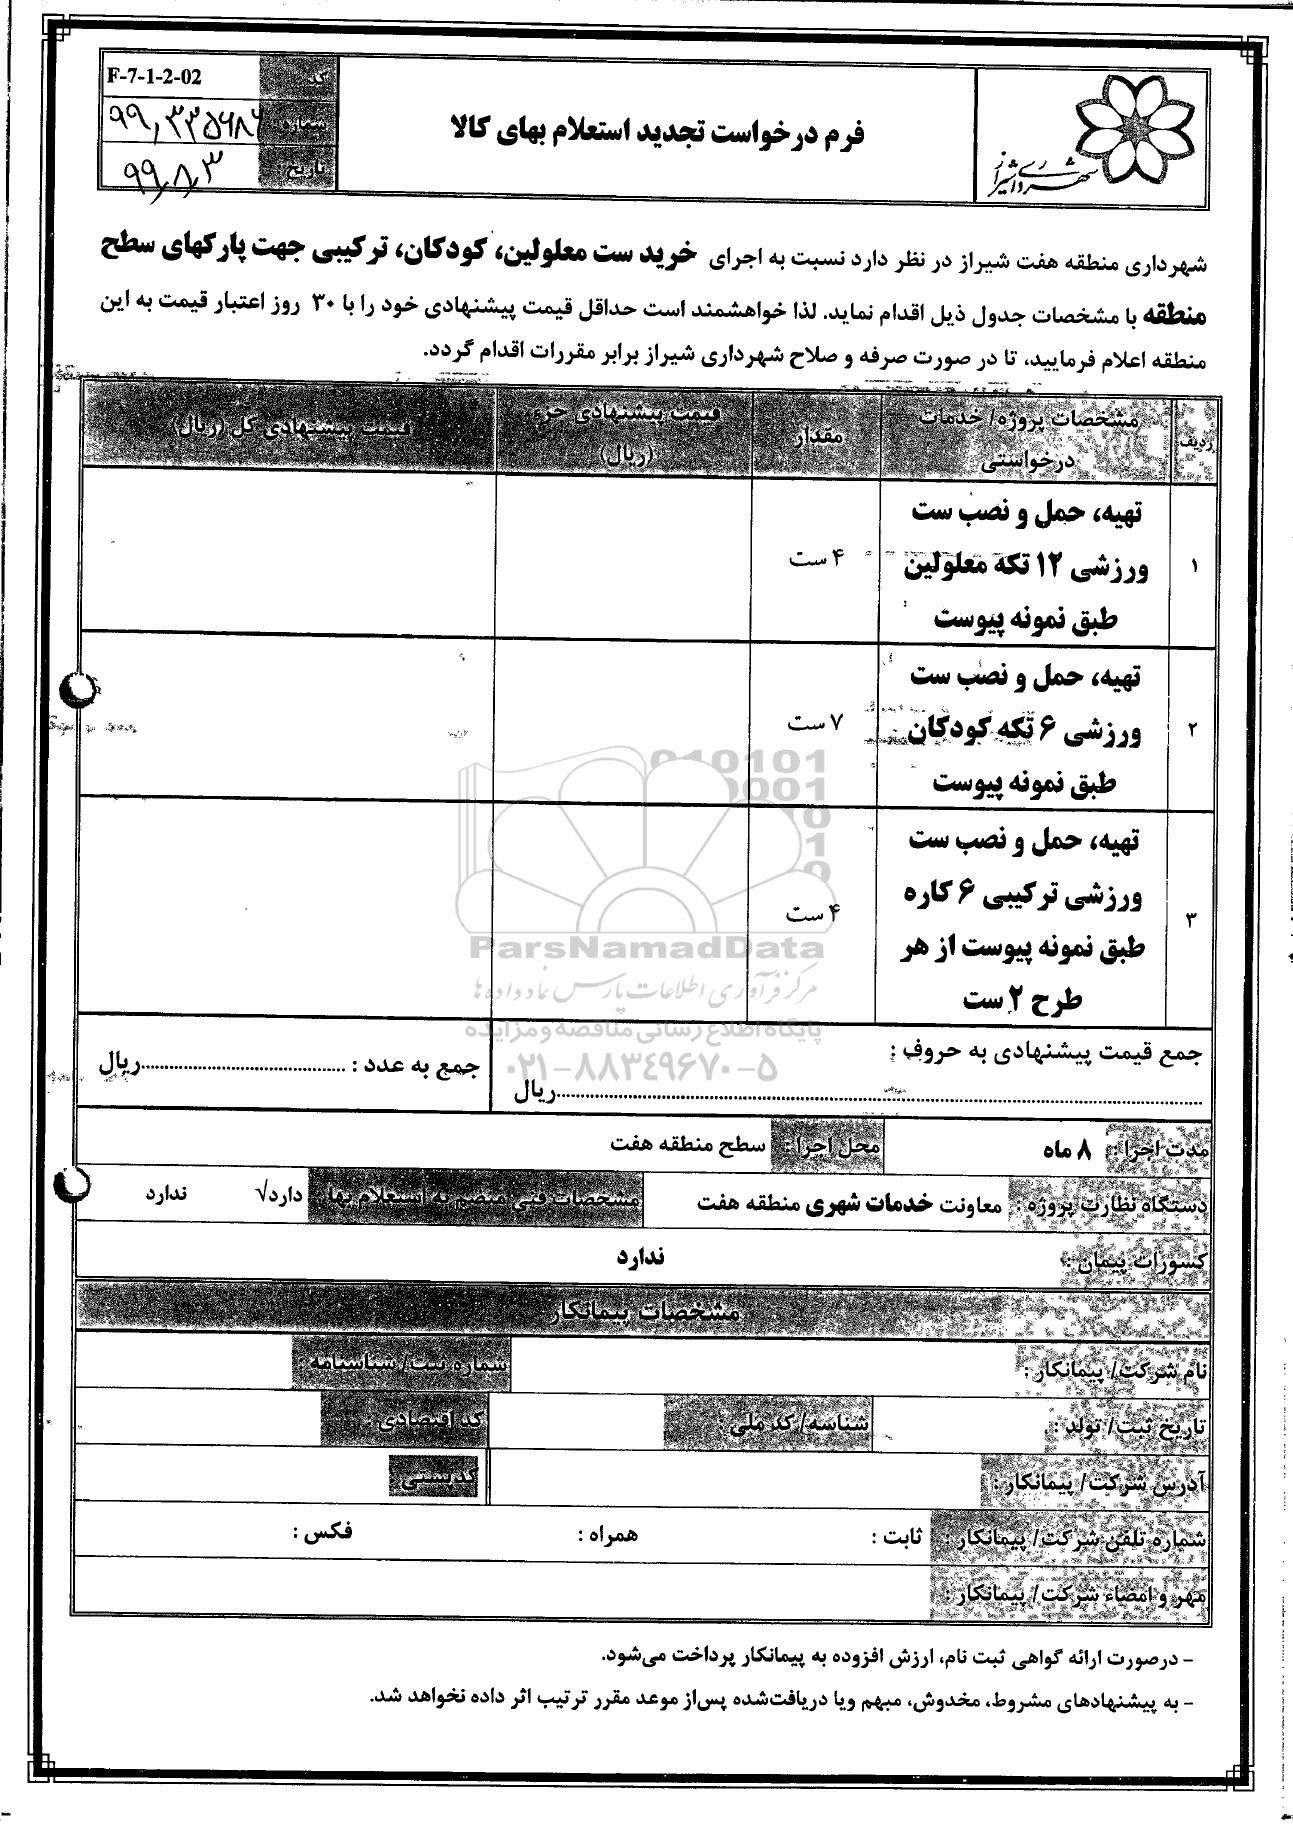 شهرداری شیراز
فرم درخواست تجدید استعلام بهای کالا
کد F-7-1-2-02
شماره:
تاریخ ۹۹/۸/۳
شهرداری منطقه هفت شیراز در نظر دارد نسبت به اجرای خرید ست معلولین، کودکان، ترکیبی جهت پارکهای سطح
منطقه با مشخصات جدول ذیل اقدام نماید. لذا خواهشمند است حداقل قیمت پیشنهادی خود را با ۳۰ روز اعتبار قیمت به این
منطقه اعلام فرمایید، تا در صورت صرفه و صلاح شهرداری شیراز برابر مقررات اقدام گردد.
ردیف مشخصات پروژه/ خدمات درخواستی مقدار قیمت پیشنهادی جزء (ریال) قیمت پیشنهادی کل (ریال)
۱ تهیه، حمل و نصب ست
ورزشی ۱۲ تکه معلولین ۴ ست
طبق نمونه پیوست
۲ تهیه، حمل و نصب ست
ورزشی ۶ تکه کودکان ۷ ست
طبق نمونه پیوست
۳ تهیه، حمل و نصب ست
ورزشی ترکیبی ۶ کاره ۴ ست
طبق نمونه پیوست از هر
طرح ۲ ست
ParsNamadData
مرکز فرآوری اطلاعات پارس نماد داده ها
پایگاه اطلاع رسانی مناقصه و مزایده
۰۲۱-۸۸۳۴۹۶۷۰-۵
جمع قیمت پیشنهادی به حروف :
...............ریال
جمع به عدد : ...............ریال
مدت اجرا : ۸ ماه محل اجرا : سطح منطقه هفت
دستگاه نظارت پروژه : معاونت خدمات شهری منطقه هفت مشخصات فنی منضم به استعلام بها : دارد√ ندارد
کسورات پیمان : ندارد
مشخصات پیمانکار
نام شرکت/ پیمانکار : شماره ثبت/ شناسنامه :
تاریخ ثبت/ تولد : شناسه/ کد ملی : کد اقتصادی :
آدرس شرکت/ پیمانکار : کدپستی :
شماره تلفن شرکت/ پیمانکار : ثابت : همراه : فکس :
مهر و امضاء شرکت/ پیمانکار :
- درصورت ارائه گواهی ثبت نام، ارزش افزوده به پیمانکار پرداخت می‌شود.
- به پیشنهادهای مشروط، مخدوش، مبهم ویا دریافت‌شده پس‌از موعد مقرر ترتیب اثر داده نخواهد شد.